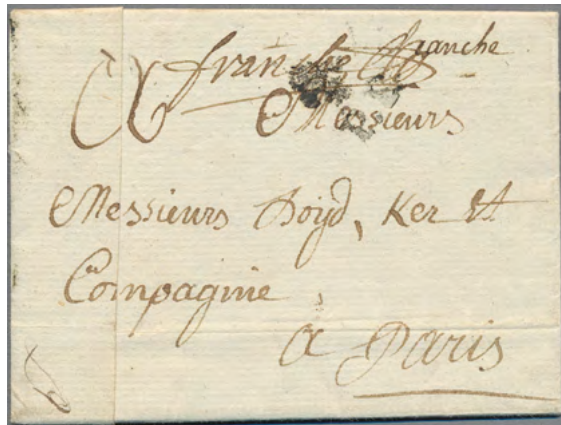 franche franche
Messieurs
Messieurs Boyd, Ker et
Compagnie,
a Paris